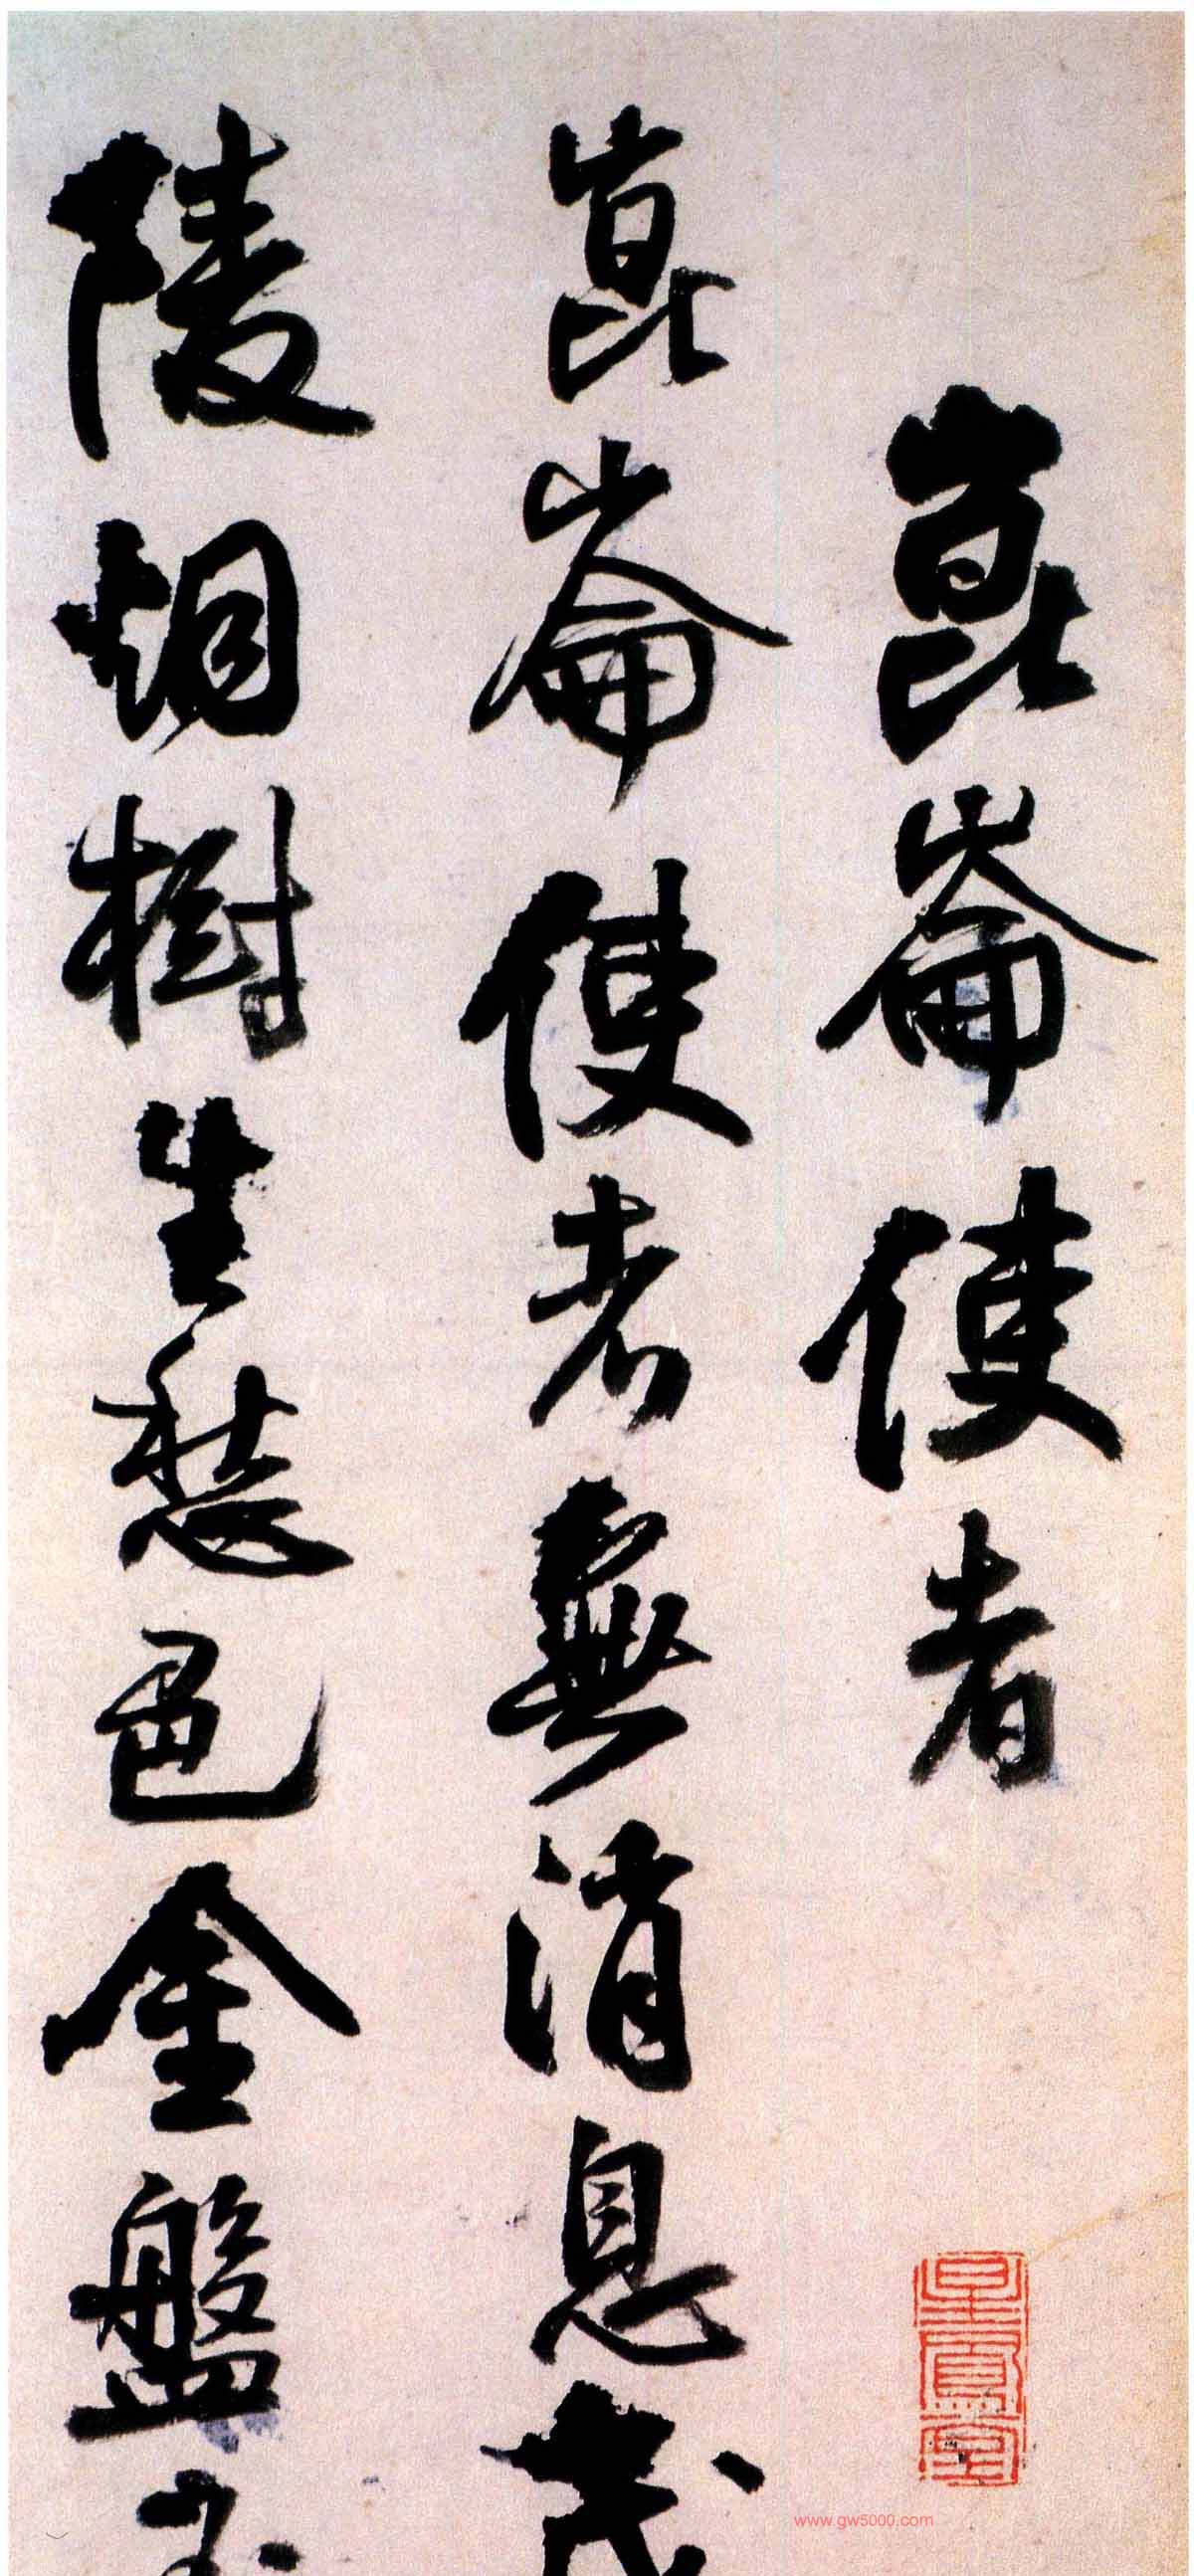 崑崙使者
崑崙使者無消息茂
陵烟樹生愁色金盤玉
www.gw5000.com